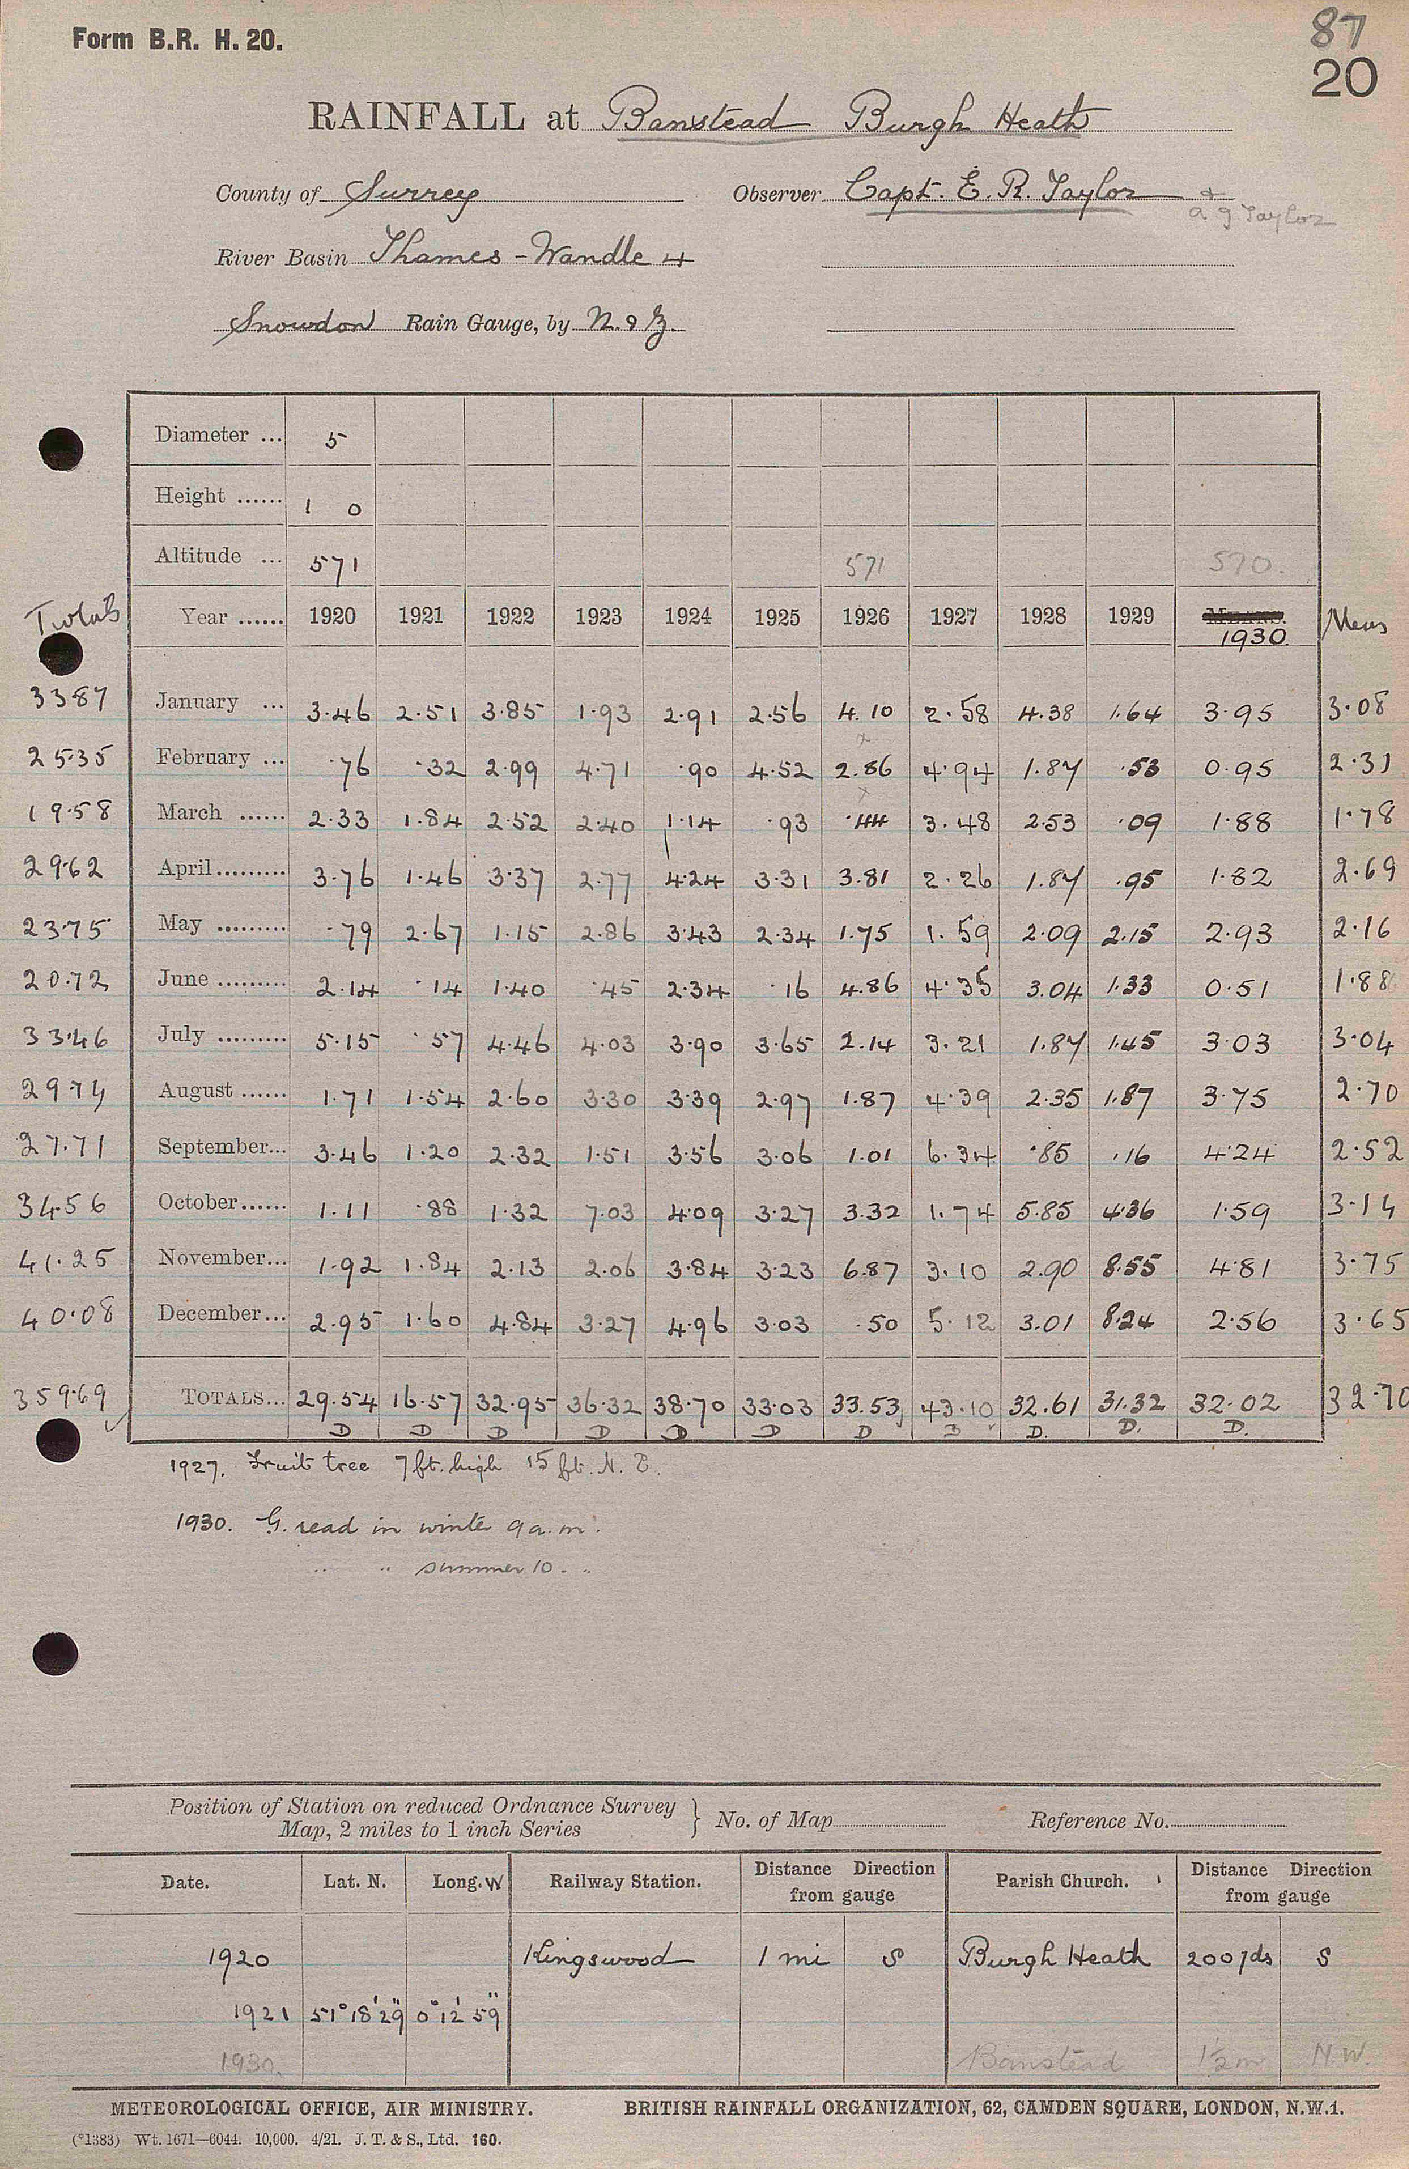 Form B.R. H. 20.
87
20
RAINFALL at Banstead Burgh Heath
County of Surrey Observer Capt. E. R. Taylor &
a g Taylor
River Basin Thames - Wandle 4
Snowdon Rain Gauge, by N. & Z.
Diameter ... 5
Height ...... 1 0
Altitude ... 571 571 570.
Totals Year ...... 1920 1921 1922 1923 1924 1925 1926 1927 1928 1929 MEANS. 1930. Means
33.87 January ... 3.46 2.51 3.85 1.93 2.91 2.56 4.10 2.58 4.38 1.64 3.95 3.08
25.35 February ... .76 .32 2.99 4.71 .90 4.52 2.86 4.94 1.87 .53 0.95 2.31
19.58 March ...... 2.33 1.84 2.52 2.40 1.14 .93 .44 3.48 2.53 .09 1.88 1.78
29.62 April......... 3.76 1.46 3.37 2.77 4.24 3.31 3.81 2.26 1.87 .95 1.82 2.69
23.75 May ......... .79 2.67 1.15 2.86 3.43 2.34 1.75 1.59 2.09 2.15 2.93 2.16
20.72 June ......... 2.14 .14 1.40 .45 2.34 .16 4.86 4.35 3.04 1.33 0.51 1.88
33.46 July ......... 5.15 .57 4.46 4.03 3.90 3.65 2.14 3.21 1.87 1.45 3.03 3.04
29.74 August ...... 1.71 1.54 2.60 3.30 3.39 2.97 1.87 4.39 2.35 1.87 3.75 2.70
27.71 September... 3.46 1.20 2.32 1.51 3.56 3.06 1.01 6.34 .85 .16 4.24 2.52
34.56 October...... 1.11 .88 1.32 7.03 4.09 3.27 3.32 1.74 5.85 4.36 1.59 3.14
41.25 November... 1.92 1.84 2.13 2.06 3.84 3.23 6.87 3.10 2.90 8.55 4.81 3.75
40.08 December... 2.95 1.60 4.84 3.27 4.96 3.03 .50 5.12 3.01 8.24 2.56 3.65
359.69 TOTALS... 29.54 16.57 32.95 36.32 38.70 33.03 33.53 43.10 32.61 31.32 32.02 32.70
D D D D D D D D D. D. D.
1927. Fruit tree 7 ft. high 15 ft. N. E.
1930. G. read in winter 9 a.m.
" " summer 10 . .
Position of Station on reduced Ordnance Survey
Map, 2 miles to 1 inch Series } No. of Map Reference No.
Date. Lat. N. Long. W Railway Station. Distance Direction from gauge Parish Church. Distance Direction from gauge
1920 Kingswood 1 mi S Burgh Heath 200 yds S
1921 51° 18' 29" 0° 12' 59"
1930. Banstead 1½ m N.W.
METEOROLOGICAL OFFICE, AIR MINISTRY. BRITISH RAINFALL ORGANIZATION, 62, CAMDEN SQUARE, LONDON, N.W.1.
(*1383) Wt. 1671—6044. 10,000. 4/21. J. T. & S., Ltd. 160.